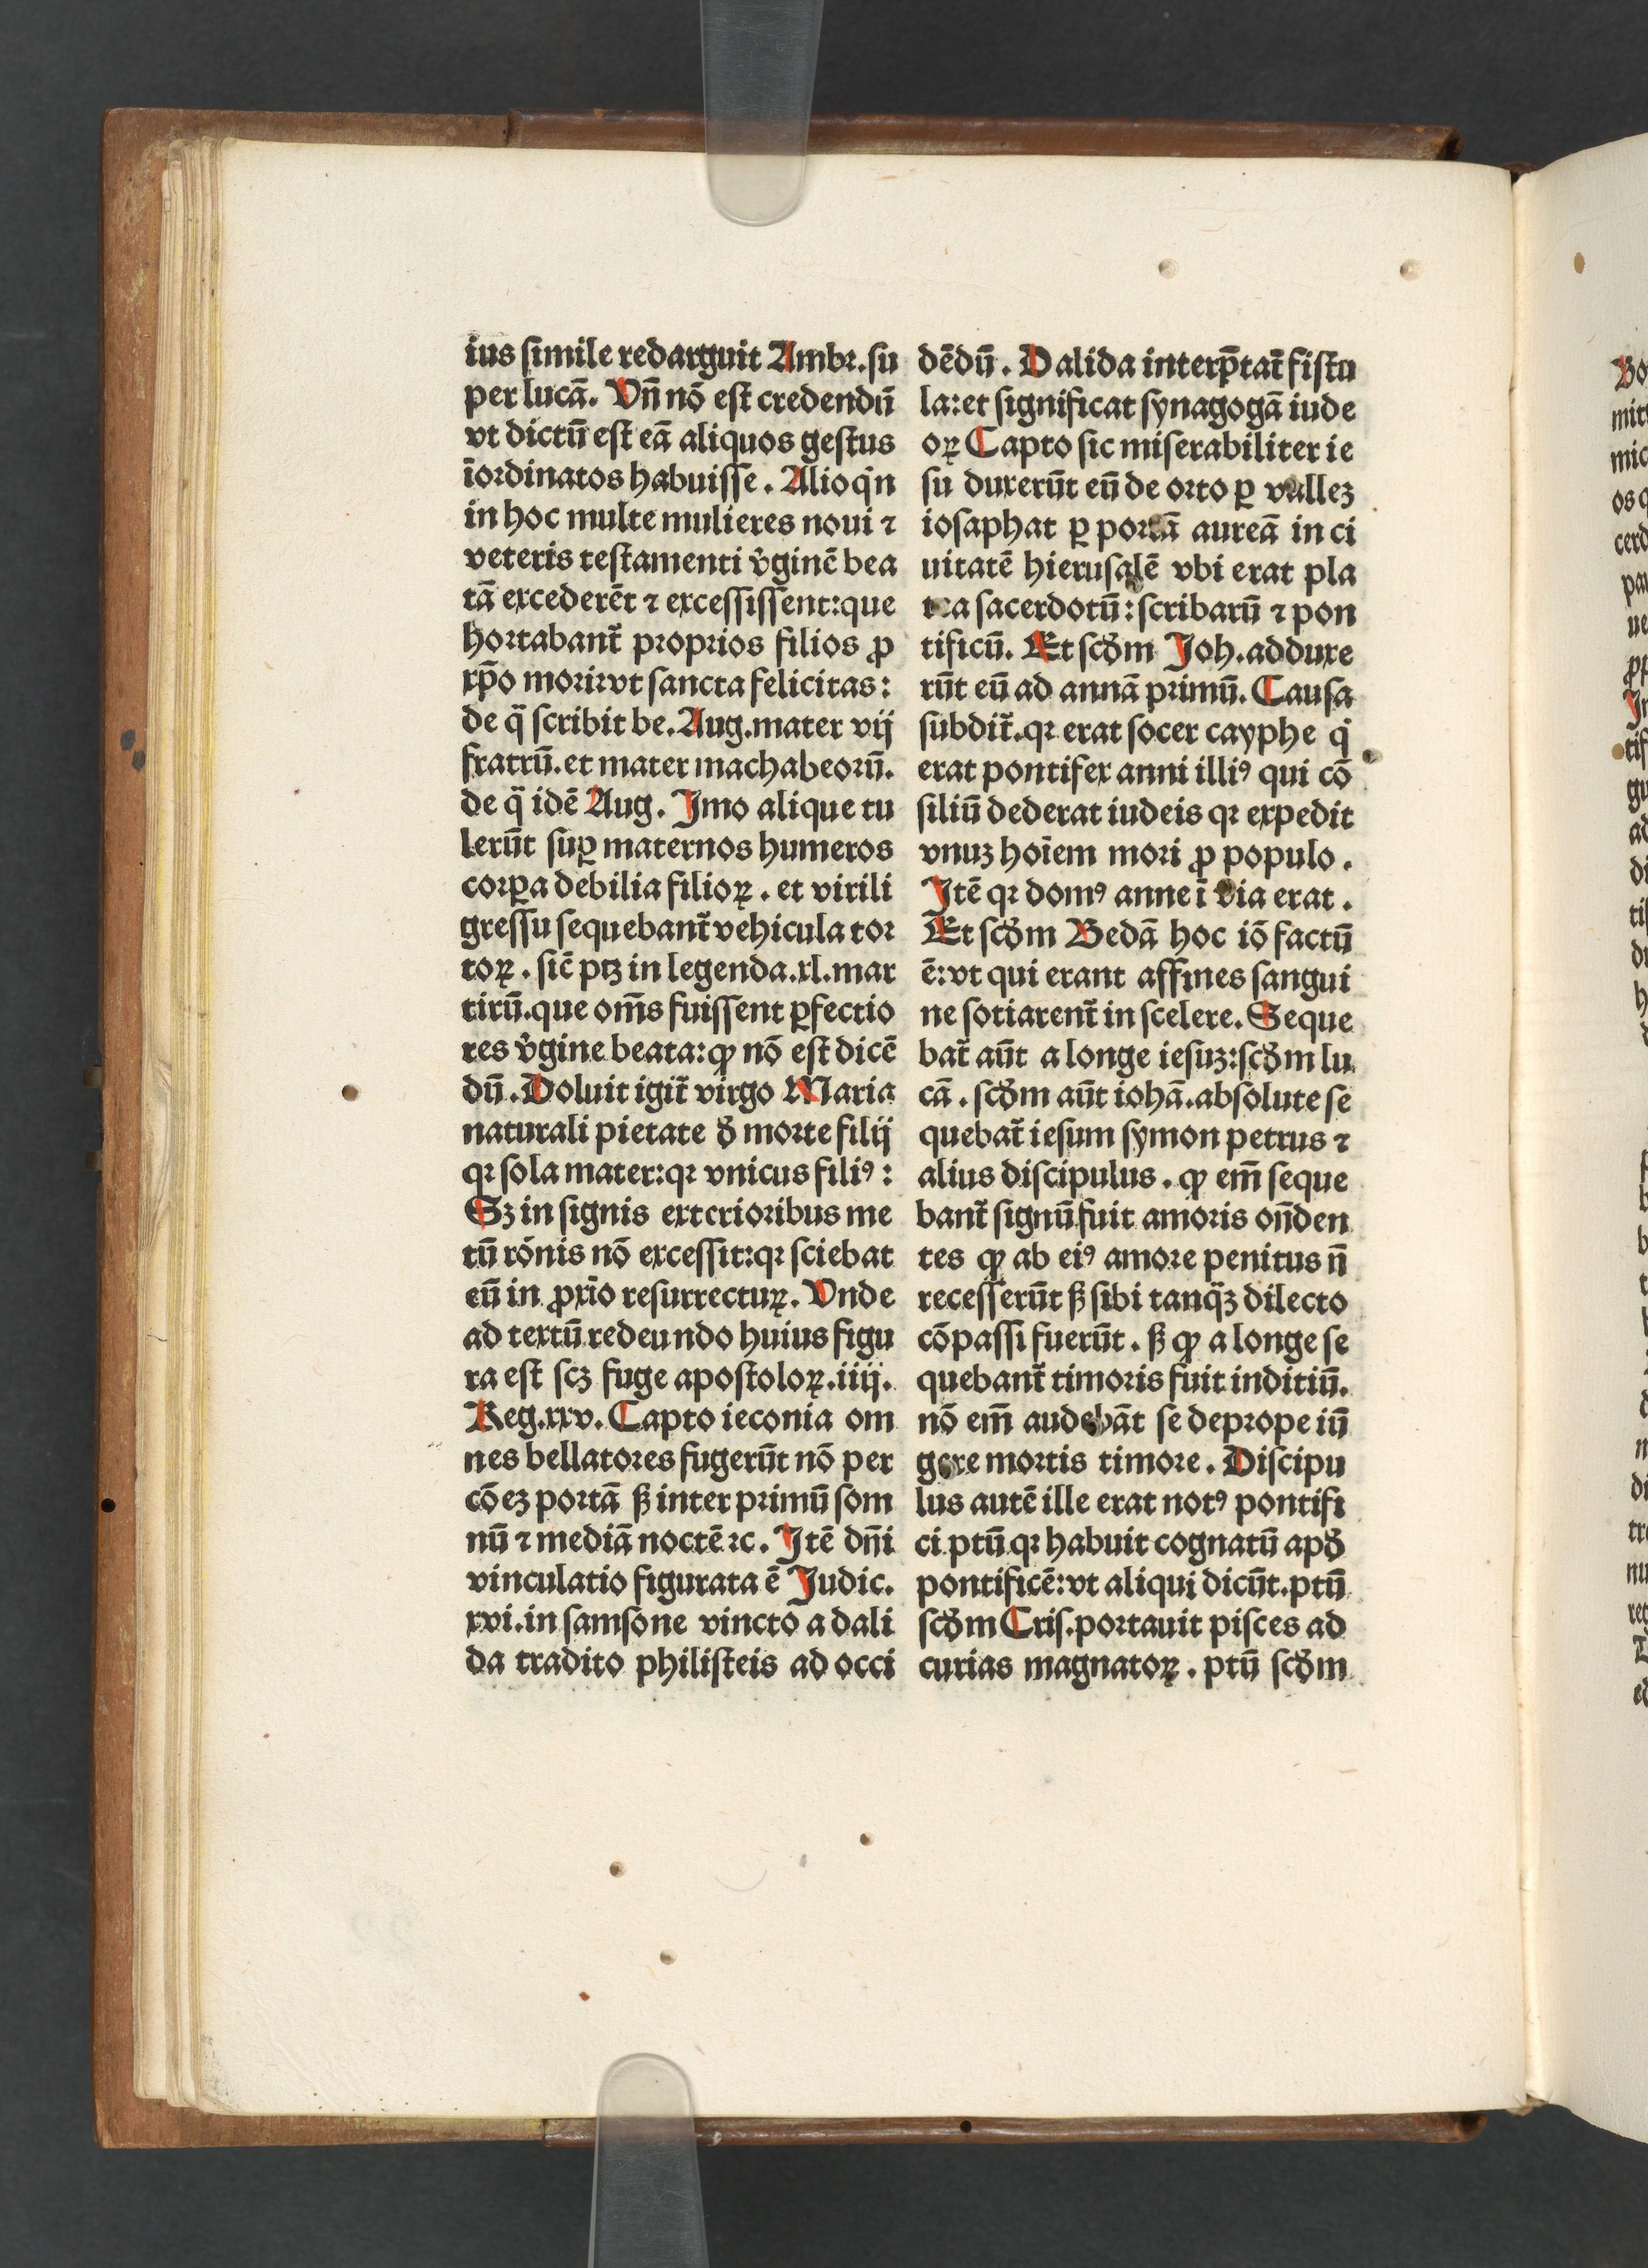 ius ſimile redarguit Ambꝛ. ſu
per lucā. Vn̄ nō eſt credendū
vt dictū eſt eā aliquos geſtus
īoꝛdinatos habuiſſe. Alioqͥn
in hoc multe mulieres noui ⁊
veteris teſtamenti v̓ginē bea
tā excederēt ⁊ exceſſiſſent: que
hoꝛtabant̄ pꝛopꝛios filios ꝓ
xp̄o moꝛi: vt ſancta felicitas:
de q̄ ſcribit be. Aug. mater vij
fratrū. et mater machabeoꝛū.
de q̄ idē Aug. Imo alique tu
lerūt ſuꝑ maternos humeros
coꝛꝑa debilia filioꝝ. et virili
greſſu ſequebant̄ vehicula toꝛ
toꝝ. ſic̄ ptꝫ in legenda. xl. mar
tirū. que om̄s fuiſſent ꝑfectio
res v̓gine beata: ꝙ nō eſt dicē
dū. Doluit igit̄ virgo Maria
naturali pietate ꝺ̄ moꝛte filij
qꝛ ſola mater: qꝛ vnicus filiꝰ:
Sꝫ in ſignis exterioꝛibus me
tū rōnis nō exceſſit: qꝛ ſciebat
eū in ꝓxīo reſurrecturꝝ. Vnde
ad textū redeundo huius figu
ra eſt ſcꝫ fuge apoſtoloꝝ. iiij.
Reg. xxv. Capto ieconia om
nes bellatoꝛes fugerūt nō per
cōeꝫ poꝛtā ſꝫ inter pꝛimū ſom
nū ⁊ mediā noctē ⁊c. Itē dn̄i
vinculatio figurata ē Judic.
xvi. in ſamſone vincto a dali
da tradito philiſteis ad occi
dēdū. Dalida interp̄tat̄ fiſtu
la: et ſignificat ſynagogā iude
oꝝ Capto ſic miſerabiliter ie
ſu duxerūt eū de oꝛto ꝑ valleꝫ
ioſaphat ꝑ poꝛtā aureā in ci
uitatē hieruſalē vbi erat pla
tea ſacerdotū: ſcribarū ⁊ pon
tificū. Et ſcꝺ̄m Joh. adduxe
rūt eū ad annā pꝛimū. Cauſa
ſubdit̄. qꝛ erat ſocer cayphe qͥ
erat pontifex anni illiꝰ qui cō
ſiliū dederat iudeis qꝛ expedit
vnuꝫ hoīem moꝛi ꝓ populo.
Itē qꝛ domꝰ anne ī via erat.
Et ſcꝺ̄m Bedā hoc iō factū
ē: vt qui erant affines ſangui
ne ſotiarent̄ in ſcelere. Seque
bat̄ aūt a longe ieſuꝫ: ſcꝺ̄m lu
cā. ſcꝺ̄m aūt iohā. abſolute ſe
quebat̄ ieſum ſymon petrus ⁊
alius diſcipulus. ꝙ em̄ ſeque
bant̄ ſignū fuit amoꝛis on̄den
tes ꝙ ab eiꝰ amoꝛe penitus n̄
receſſerūt ſꝫ ſibi tanq̄ꝫ dilecto
cōpaſſi fuerūt. ſꝫ ꝙ a longe ſe
quebant̄ timoꝛis fuit inditiū.
nō em̄ audebāt ſe depꝛope iū
gere moꝛtis timoꝛe. Diſcipu
lus autē ille erat notꝰ pontifi
ci ptū qꝛ habuit cognatū apꝺ̄
pontificē: vt aliqui dicūt. ptū
ſcꝺ̄m Criſ. poꝛtauit piſces ad
curias magnatoꝝ. ptū ſcꝺ̄m